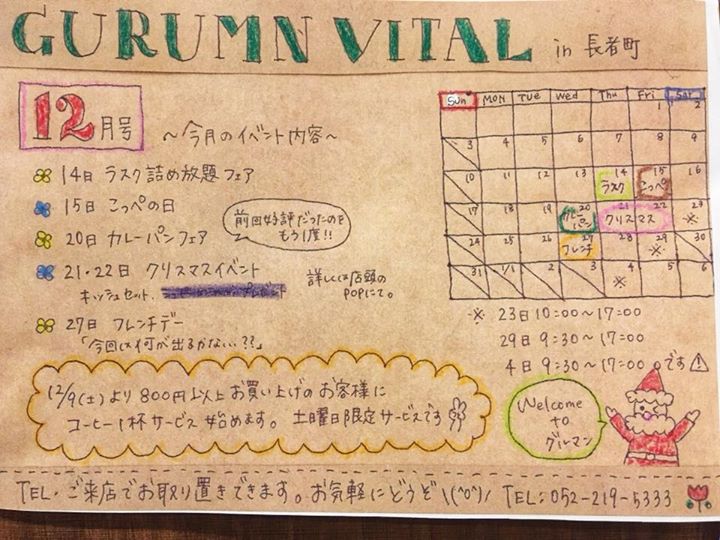 GURUMN VITAL in 長者町
12月号
～今月のイベント内容～
14日 ラスク詰め放題フェア
15日 こっぺの日
20日 カレーパンフェア
前回好評だったので
もう1度!!
21・22日 クリスマスイベント
キッシュセット、
詳しくは店頭の
POPにて。
27日 フレンチデー
「今回は何が出るかない??」
Sun MON TUE Wed Thu Fri Sat
1 2
3 4 5 6 7 8 9
10 11 12 13 14 15 16
ラスク こっぺ
17 18 19 20 21 22 23
カレーパン クリスマス ※
24 25 26 27 28 29 30
フレンチ ※
31 1/1 2 3 4 5 6
※
※ 23日 10:00～17:00
29日 9:30～17:00
4日 9:30～17:00 です
12/9(土)より 800円以上お買い上げのお客様に
コーヒー1杯サービス 始めます。土曜日限定サービスです
Welcome
to
グルマン
TEL・ご来店でお取り置きできます。お気軽にどうぞ\(^o^)/ TEL:052-219-5333